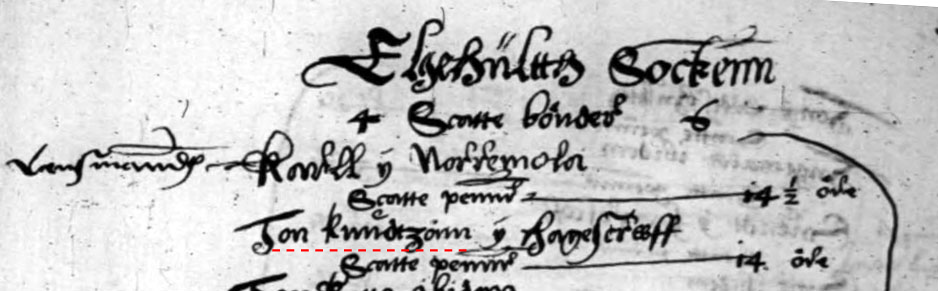 Elgehültth Sockenn
4 Scatte bönder 6
Lensmandh Karll y Norremola
Scatte penner 14 ½ öre
Jon knudtzönn y hages
Scatte penner 14 öre